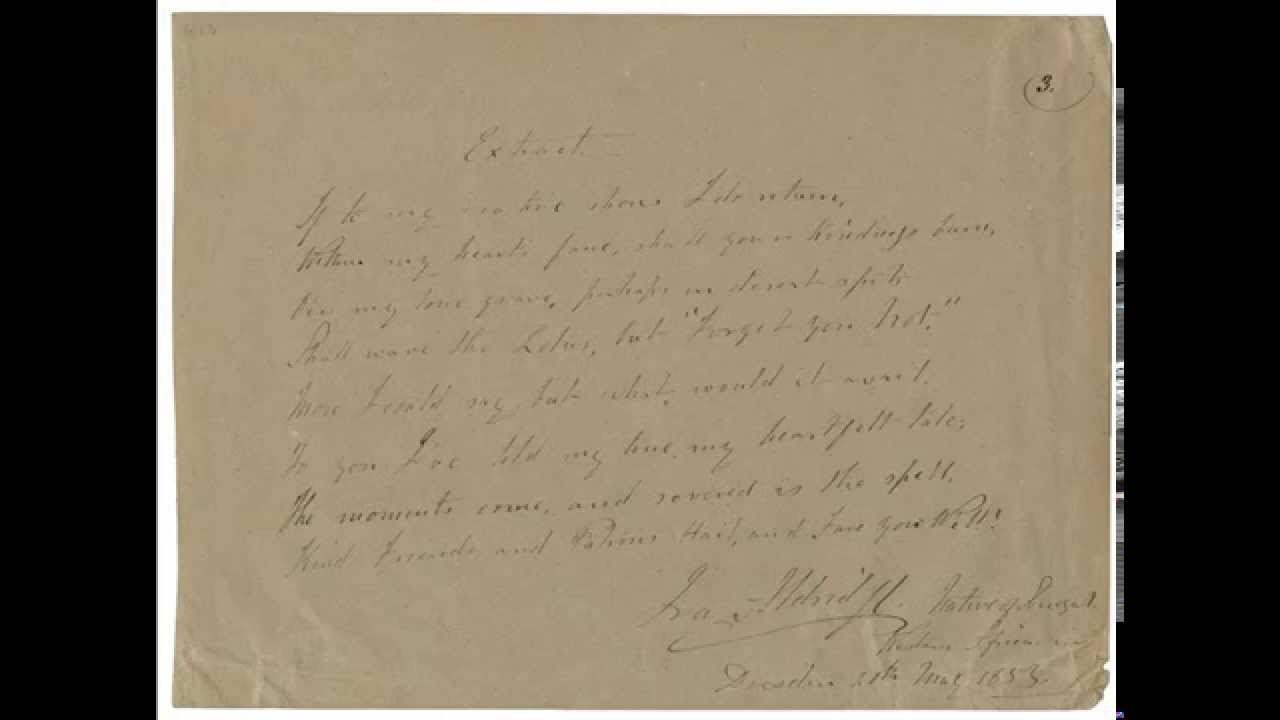 3.
Extract. —
If to my native shores I do return,
Within my heart's fane, shall your kindings burn,
O'er my lone grave, perhaps in desert spot
Shall wave the Lotus, but "Forget you Not."
More I could say, but what, would it avail.
To you I've told my true, my heartfelt tale;
The moments come, and severed is the spell,
Kind Friends and Patrons Hail, and Fare you Well!
Ira Aldridge. Native of Senegal.
Western Africa
Dresden 20th May 1853.